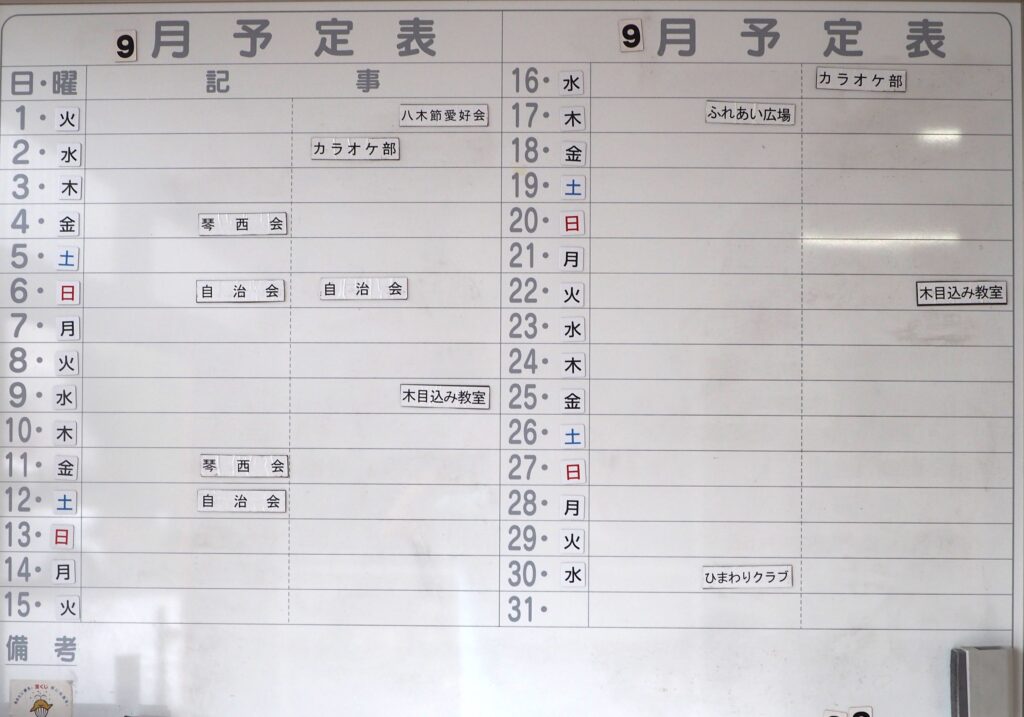 9月予定表
日・曜 記事
1・火 八木節愛好会
2・水 カラオケ部
3・木
4・金 琴西会
5・土
6・日 自治会 自治会
7・月
8・火
9・水 木目込み教室
10・木
11・金 琴西会
12・土 自治会
13・日
14・月
15・火
備考
9月予定表
16・水 カラオケ部
17・木 ふれあい広場
18・金
19・土
20・日
21・月
22・火 木目込み教室
23・水
24・木
25・金
26・土
27・日
28・月
29・火
30・水 ひまわりクラブ
31・